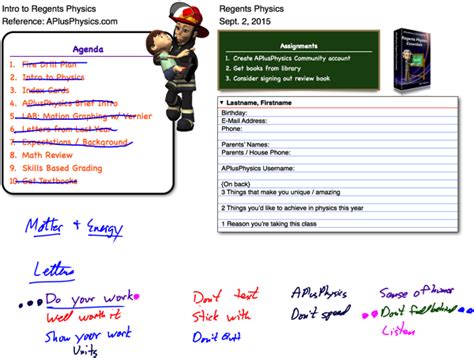 Intro to Regents Physics
Reference: APlusPhysics.com
Regents Physics
Sept. 2, 2015
Agenda
1. Fire Drill Plan
2. Intro to Physics
3. Index Cards
4. APlusPhysics Brief Intro
5. LAB: Motion Graphing w/ Vernier
6. Letters from Last Year
7. Expectations / Background
8. Math Review
9. Skills Based Grading
10. Get Textbooks
Assignments
1. Create APlusPhysics Community account
2. Get books from library
3. Consider signing out review book
Regents Physics
Essentials
▼ Lastname, Firstname
Birthday:
E-Mail Address:
Phone:
Parents' Names:
Parents / House Phone:
APlusPhysics Username:
{On back}
3 Things that make you unique / amazing
2 Things you'd like to achieve in physics this year
1 Reason you're taking this class
Matter + Energy
Letters
Do your work
Well worth it
Show your work
Units
Don't text
Stick with
Don't Quit
APlusPhysics
Don't spend
Sense of humor
Don't fall behind
Listen